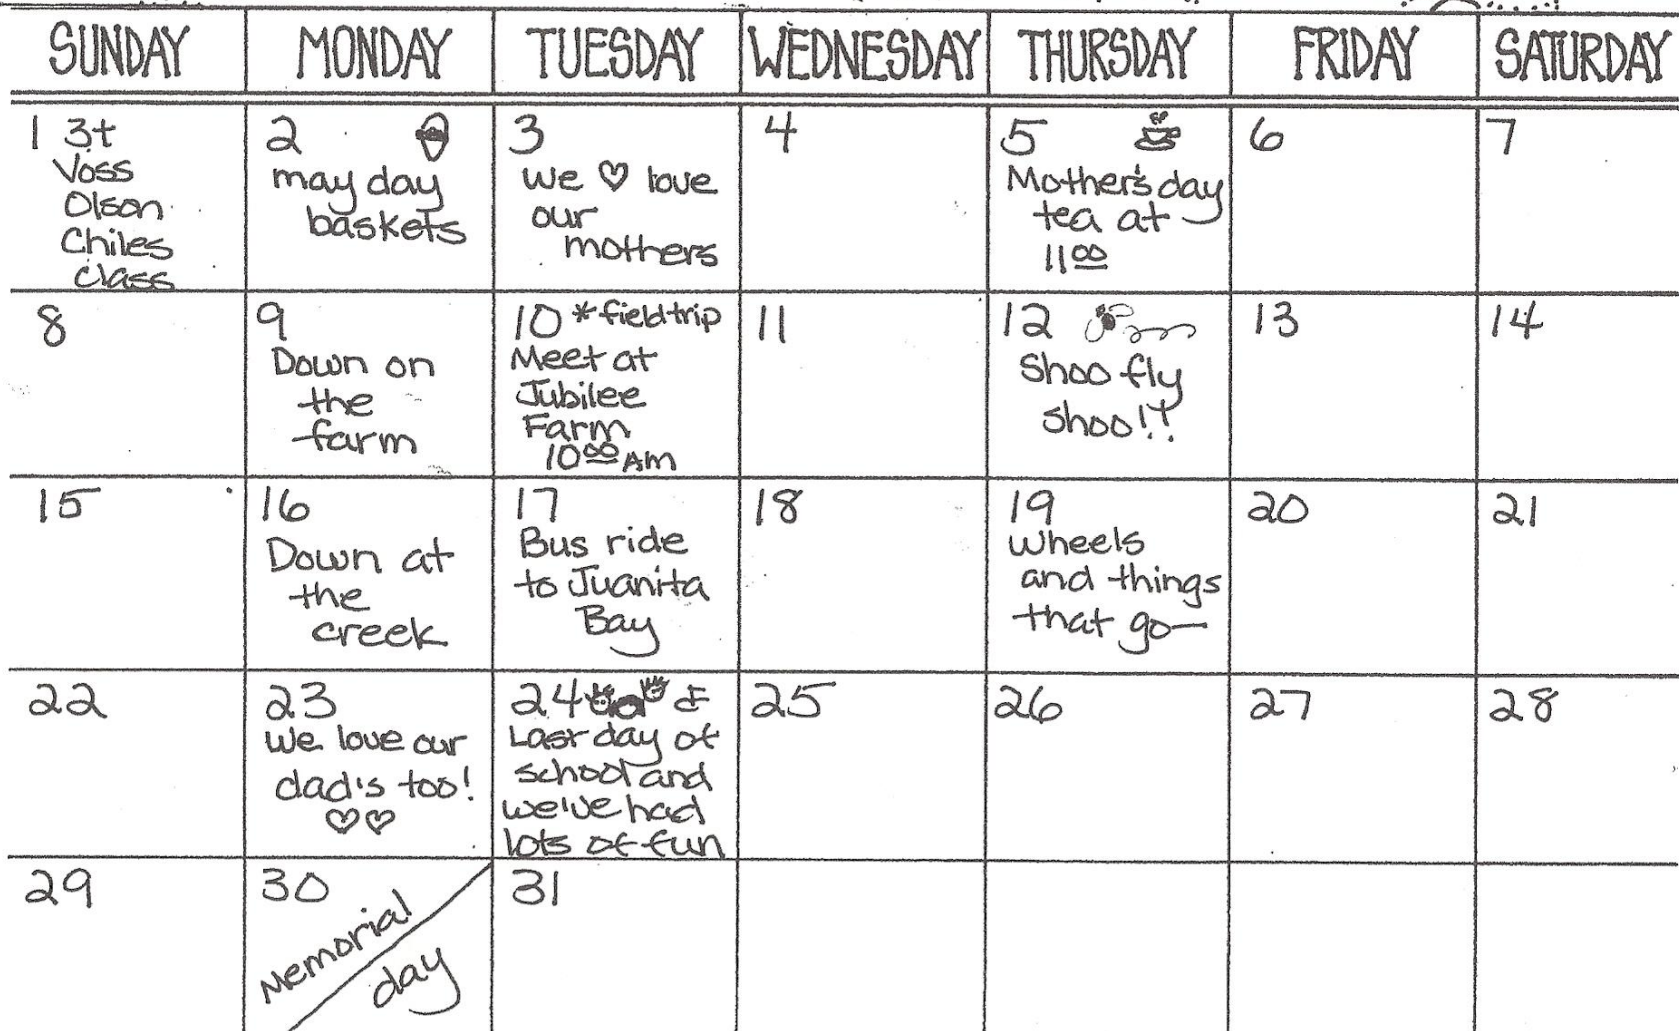 SUNDAY MONDAY TUESDAY WEDNESDAY THURSDAY FRIDAY SATURDAY
1 3t
Voss
Olson
Chiles
class
2
may day
baskets
3
we ♡ love
our
mothers
4
5
Mother's day
tea at
11 00
6
7
8
9
Down on
the
farm
10 *field trip
Meet at
Jubilee
Farm
10 00 AM
11
12
Shoo fly
shoo!!
13
14
15
16
Down at
the
creek
17
Bus ride
to Juanita
Bay
18
19
Wheels
and things
that go—
20
21
22
23
We love our
dad's too!
♡♡
24
Last day of
school and
we've had
lots of fun
25
26
27
28
29
30
Memorial
day
31